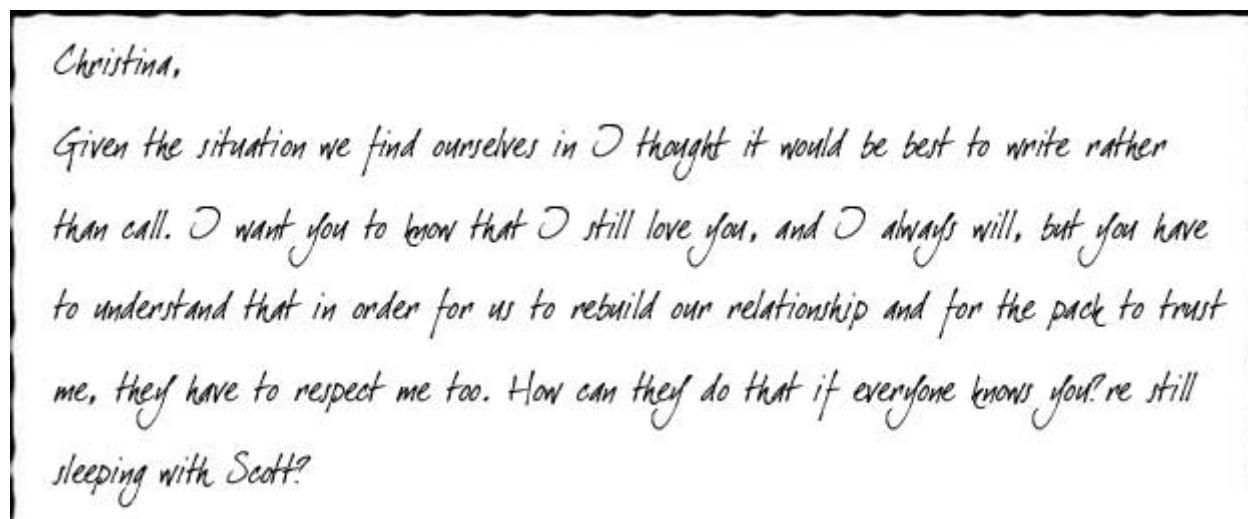 Christina,
Given the situation we find ourselves in I thought it would be best to write rather
than call. I want you to know that I still love you, and I always will, but you have
to understand that in order for us to rebuild our relationship and for the pack to trust
me, they have to respect me too. How can they do that if everyone knows you?re still
sleeping with Scott?